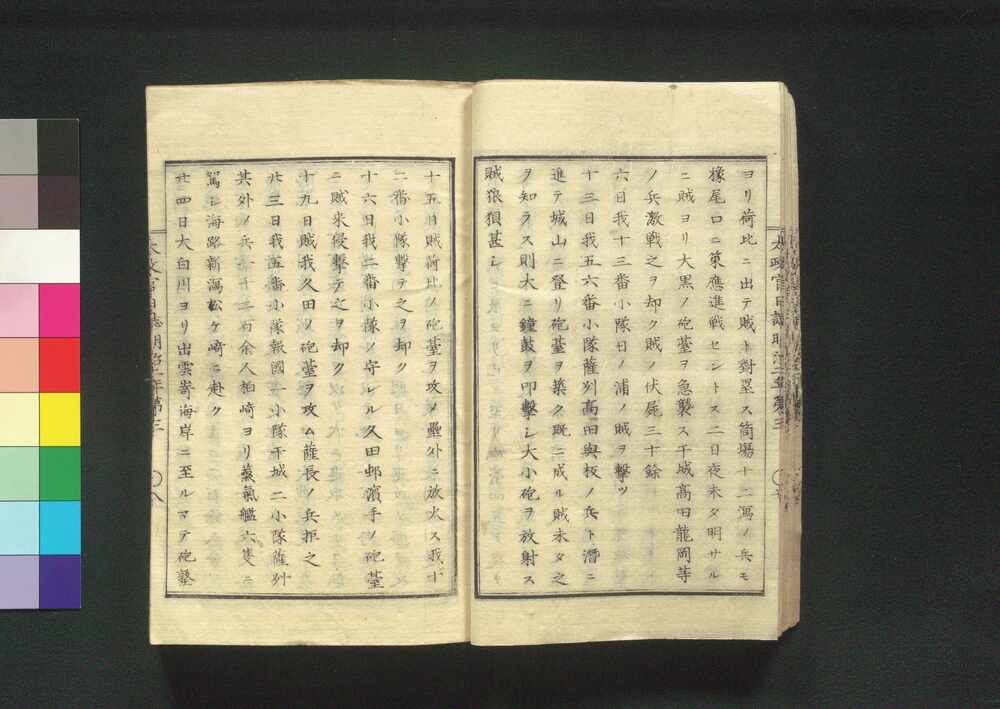 ヨリ荷比ニ出テ賊ト對壘ス筒場十二潟ノ兵モ
橡尾口ニ策應進戰セントス二日夜未タ明サル
ニ賊ヨリ大黒ノ砲䑓ヲ急襲ス干城高田龍岡等
ノ兵激戰之ヲ却ク賊ノ伏屍三十餘
六日我十三番小隊日ノ浦ノ賊ヲ擊ツ
十三日我五六番小隊薩州高田與板ノ兵ト潛ニ
進テ城山ニ登リ砲䑓ヲ築ク既ニ成ル賊未タ之
ヲ知ラス則大ニ鐘鼓ヲ叩擊シ大小砲ヲ放射ス
賊狼狽甚シ
太政官日誌明治二年第三
十五日賊荷比ノ砲䑓ヲ攻メ壘外ニ放火ス我十
二番小隊擊テ之ヲ却ク
十六日我二番小隊ノ守レル久田邨濱手ノ砲䑓
ニ賊来侵擊テ之ヲ却ク
十九日賊我久田ノ砲䑓ヲ攻ム薩長ノ兵拒之
廿三日我五番小隊報國一小隊干城二小隊薩州
其外ノ兵一千二百余人柏崎ヨリ蒸氣艦六隻ニ
駕シ海路新潟松ケ崎ニ赴ク
廿四日大白川ヨリ出雲嵜海岸ニ至ルマテ砲墊
太政官日誌明治二年第三
〇八